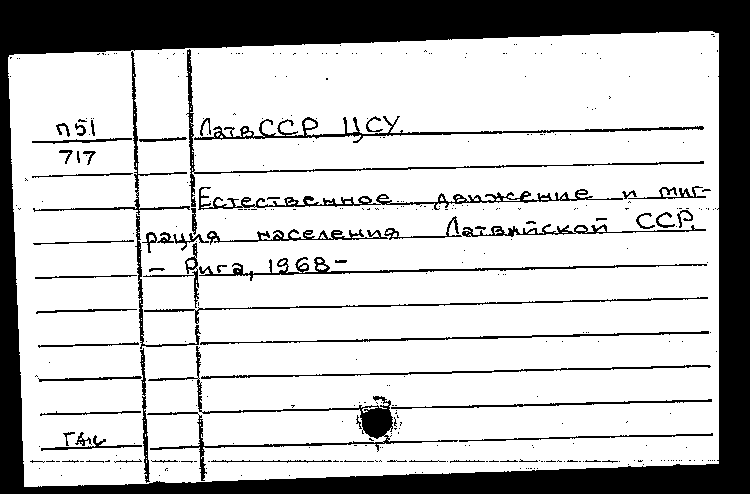 П51 ЛатвССР ЦСУ.
717
Естественное движение и миг-
рация населения Латвийской ССР.
— Рига, 1968—